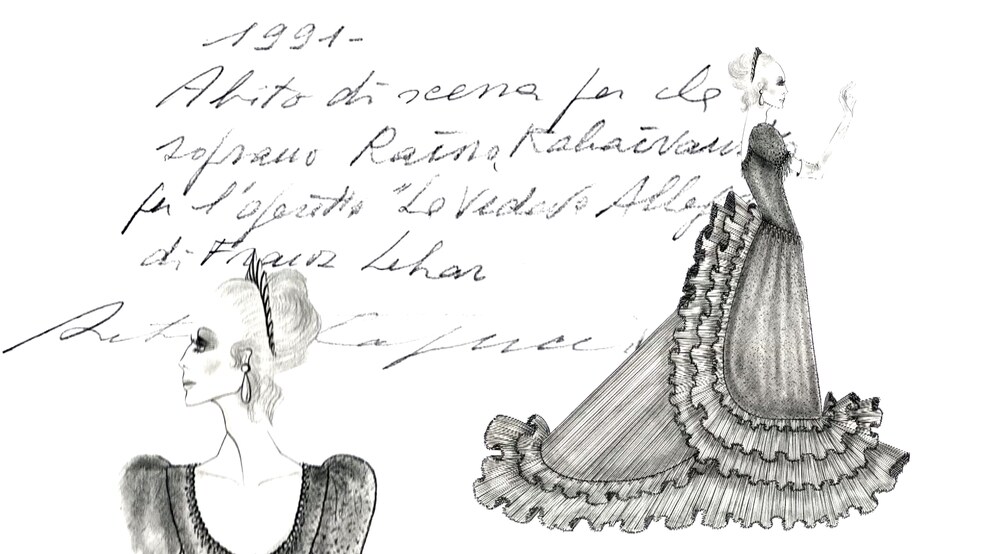 1991-
Abito di scena per la
soprano Raina Kabaivans
per l'operetta "La Vedova Alleg
di Franz Lehar
Capucci